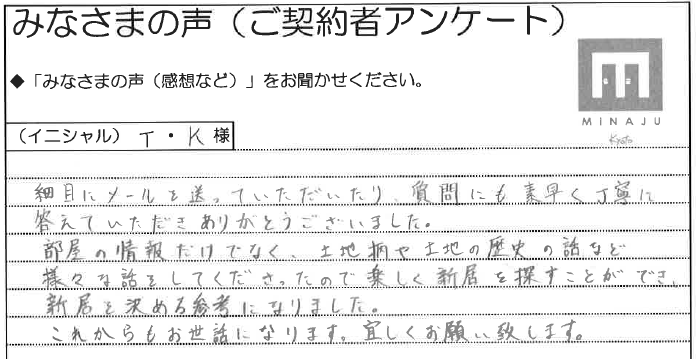 みなさまの声（ご契約者アンケート）
◆「みなさまの声（感想など）」をお聞かせください。
MINAJU
Kyoto
（イニシャル） T・K 様
細目にメールを送っていただいたり、質問にも素早く丁寧に
答えていただきありがとうございました。
部屋の情報だけでなく、土地柄や土地の歴史の話など
様々な話をしてくださったので楽しく新居を探すことができ、
新居を決める参考になりました。
これからもお世話になります。宜しくお願い致します。